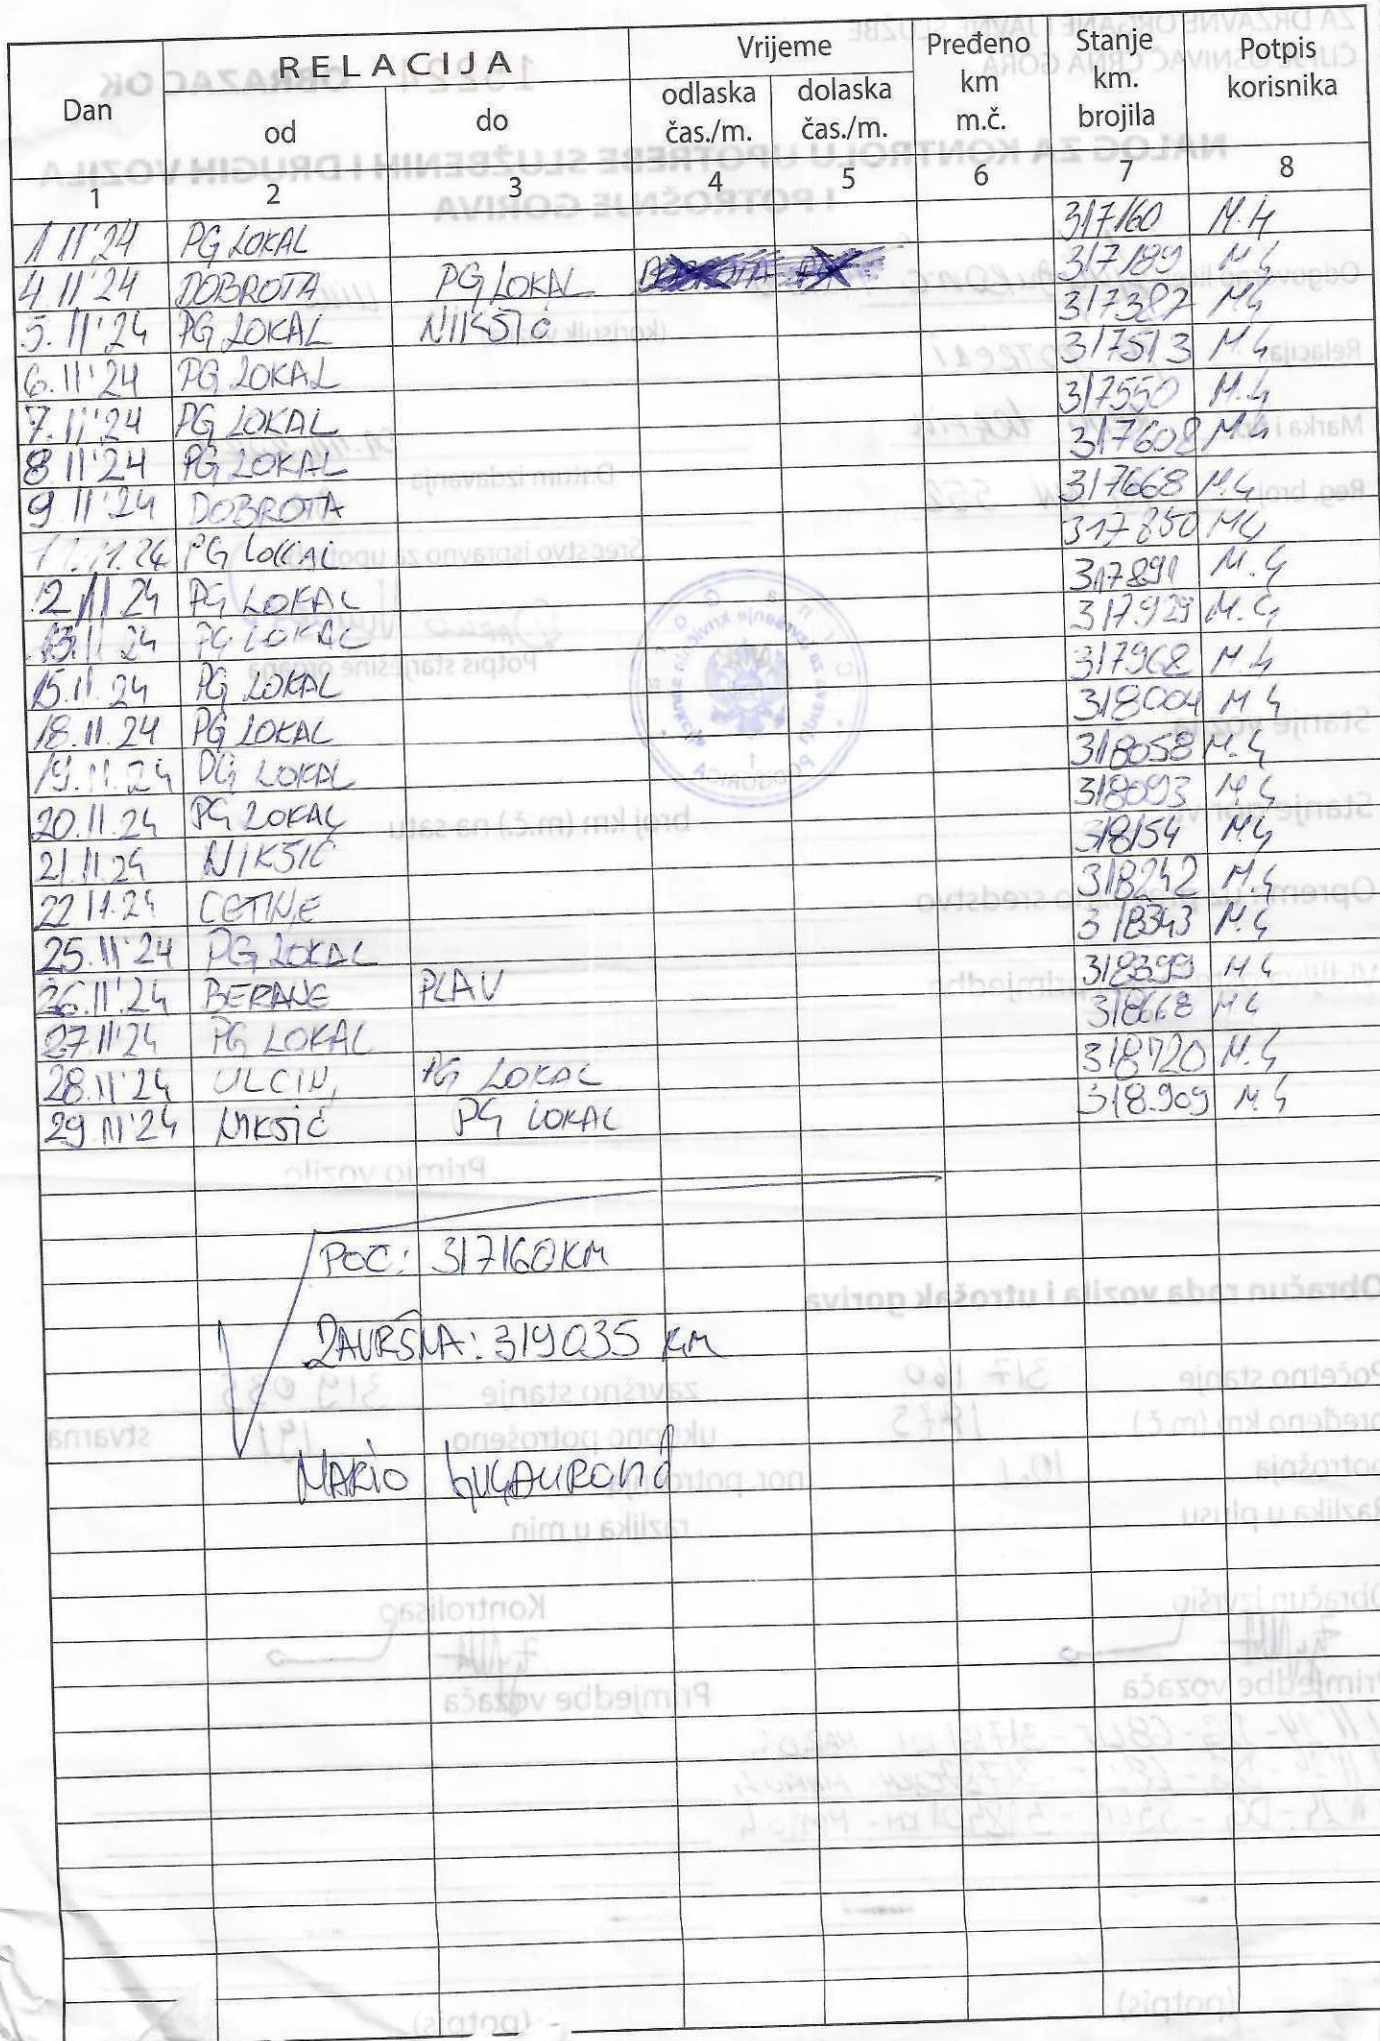 Dan RELACIJA Vrijeme Pređeno km m.č. Stanje km. brojila Potpis korisnika
od do odlaska čas./m. dolaska čas./m.
1 2 3 4 5 6 7 8
1 11'24 PG LOKAL 317160 M.G
4.11'24 DOBROTA PG LOKAL 317189 M.G
5.11'24 PG LOKAL NIKŠIĆ 317387 M.G
6.11'24 PG LOKAL 317513 M.G
7.11'24 PG LOKAL 317550 M.G
8 11'24 PG LOKAL 317608 M.G
9 11'24 DOBROTA 317668 M.G
11.11.24 PG LOKAL 317850 M.G
12.11.24 PG LOKAL 317891 M.G
13.11.24 PG LOKAL 317929 M.G
15.11.24 PG LOKAL 317968 M.G
18.11.24 PG LOKAL 318004 M.G
19.11.24 PG LOKAL 318058 M.G
20.11.24 PG LOKAL 318093 M.G
21.11.24 NIKŠIĆ 318154 M.G
22 11.24 CETINJE 318242 M.G
25.11'24 PG LOKAL 318343 M.G
26.11'24 BERANE PLAV 318399 M.G
27.11'24 PG LOKAL 318668 M.G
28.11'24 ULCINJ PG LOKAL 318720 M.G
29.11'24 NIKŠIĆ PG LOKAL 318.909 M.G
POČ: 317160 KM
ZAVRŠNA: 319035 KM
MARIO